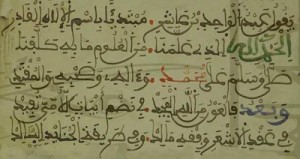 يقول عبد الواحد بن عاشر مبتدئا باسم الإله القادر
الحمد لله الذي علمنا من العلوم ما به كلفنا
صلى وسلم على محمد وآله وصحبه والمقتدي
وبعد فالعون من الله المجيد في نظم أبيات للأمي تفيد
في عقد الأشعري وفقه مالك وفي طريقة الجنيد السالك